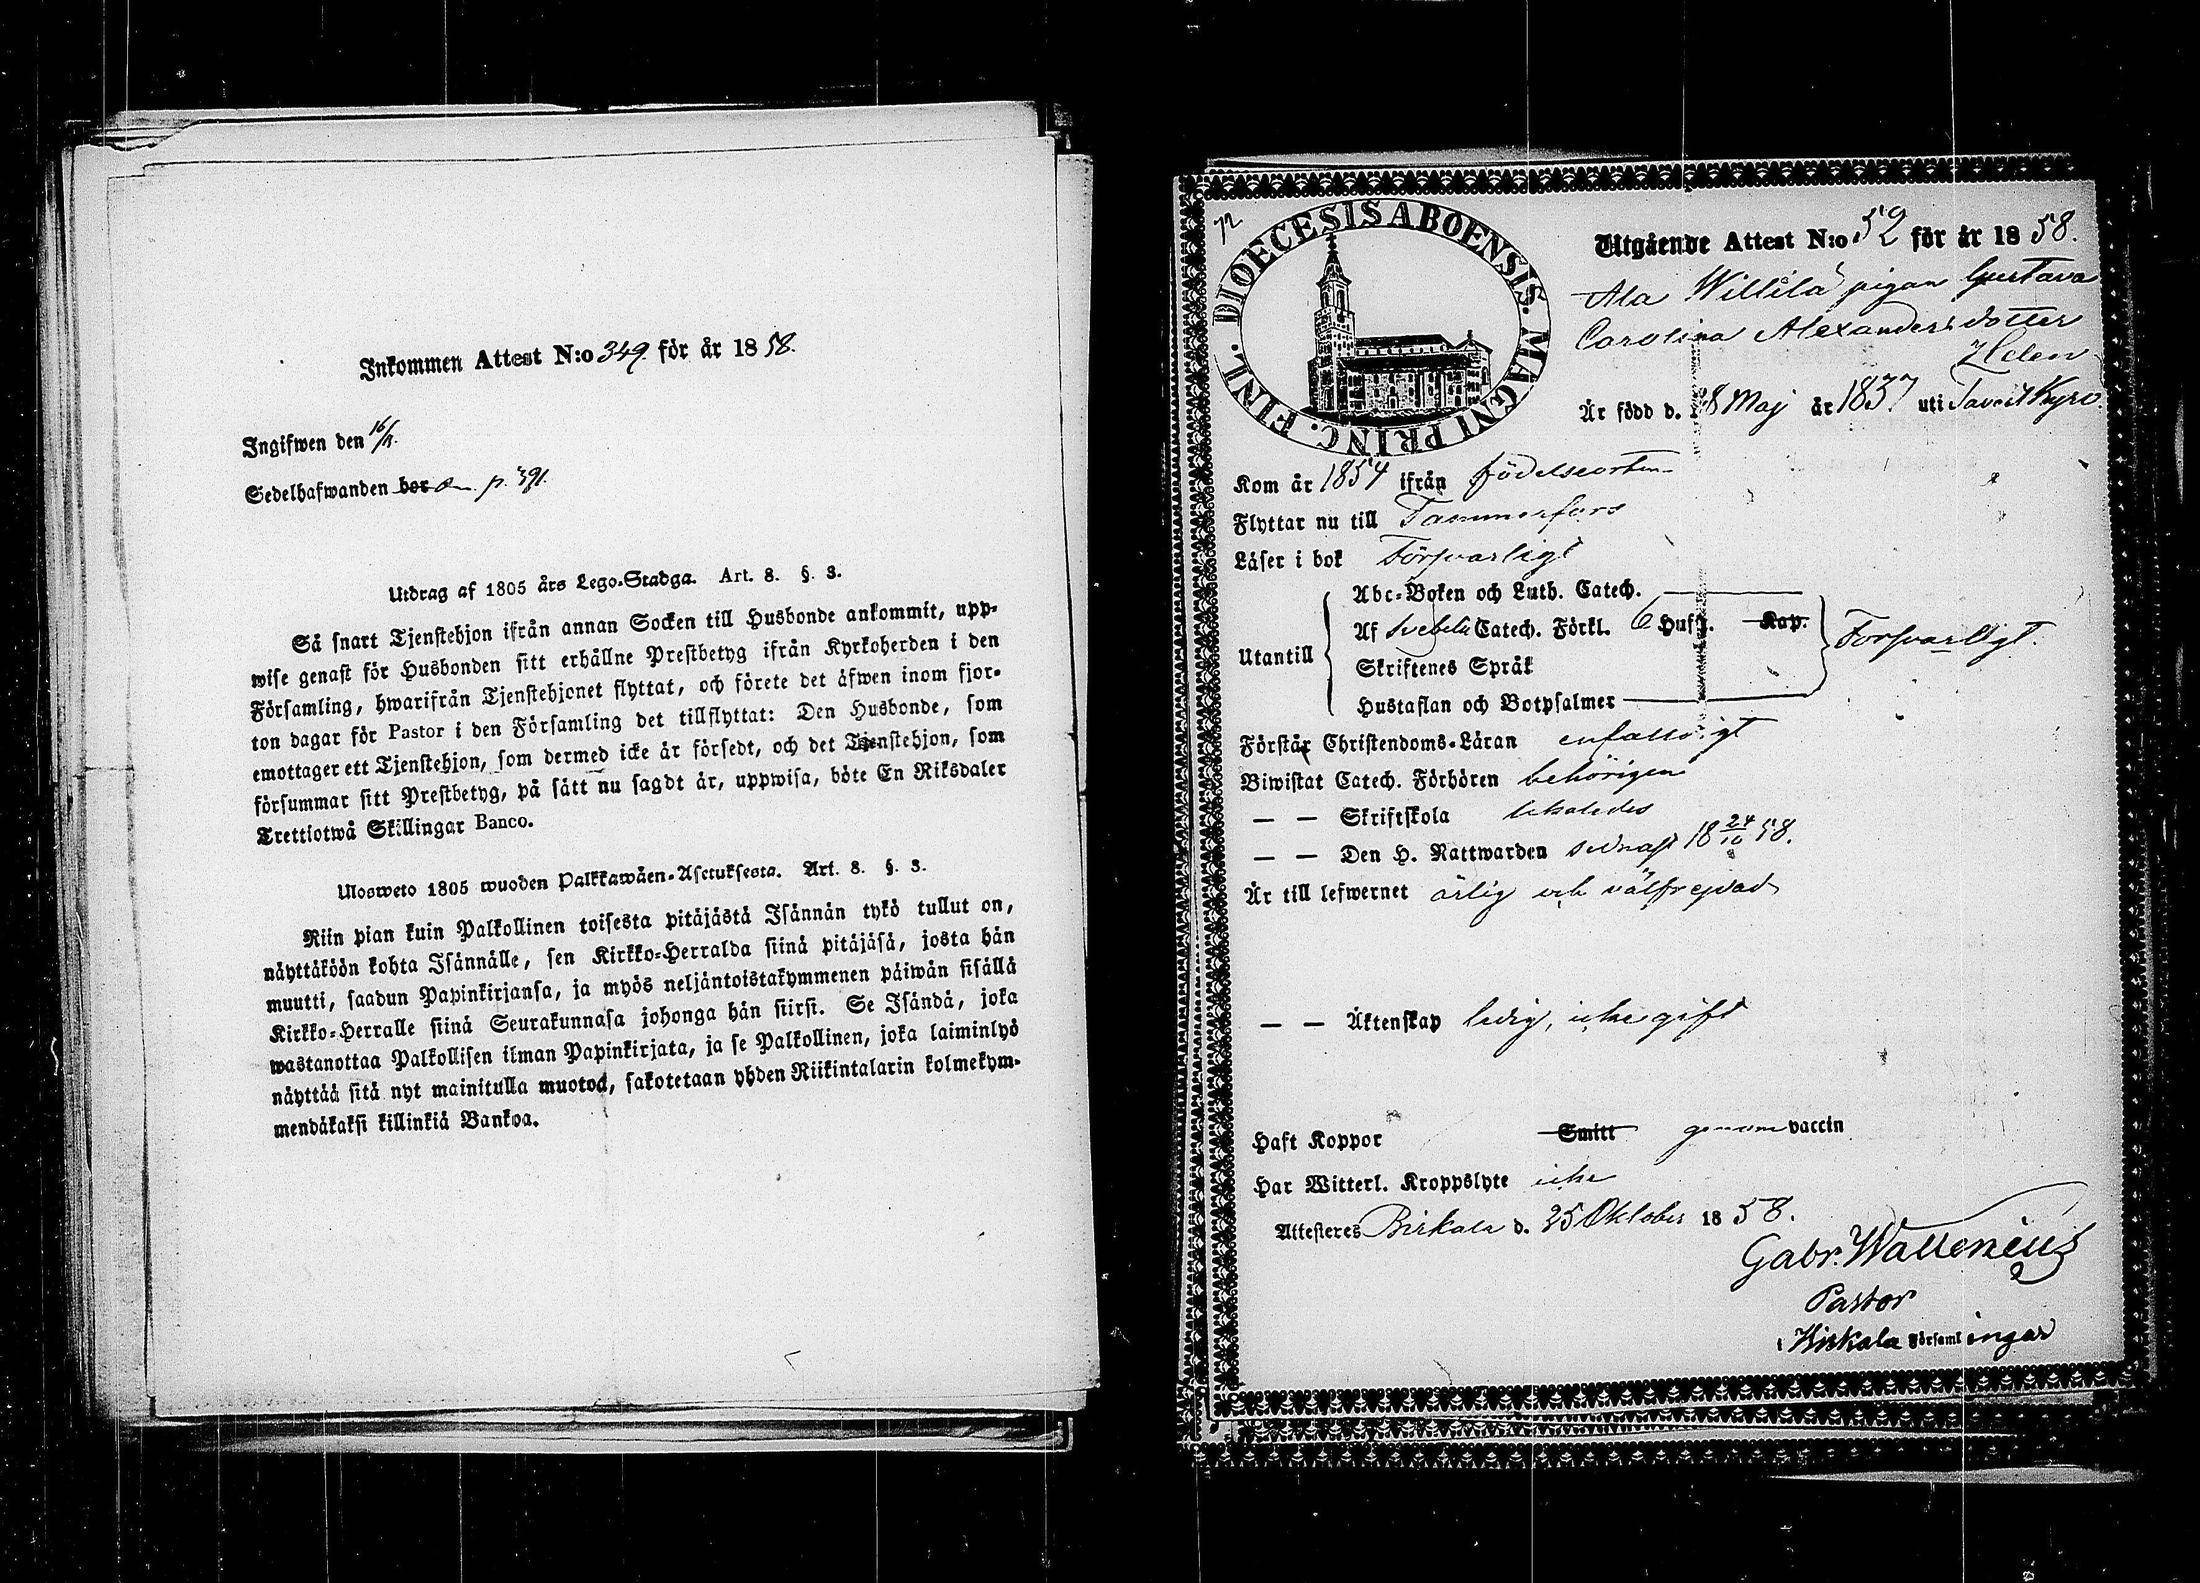 Inkommen Attest N:o 349. för år 1858.
Ingifwen den 16/11.
Sedelhafwanden bor p. 391.
Utdrag af 1805 års Lego-Stadga. Art. 8. §. 3.
Så snart Tjenstehjon ifrån annan Socken till Husbonde ankommit, upp-
wise genast för Husbonden sitt erhållne Prestbetyg ifrån Kyrkoherden i den
Församling, hwarifrån Tjenstehjonet flyttat, och förete det äfwen inom fjor-
ton dagar för Pastor i den Församling det tillflyttat: Den Husbonde, som
emottager ett Tjenstehjon, som dermed icke är försedt, och det Tjenstehjon, som
försummar sitt Prestbetyg, på sätt nu sagdt är, uppwisa, böte En Riksdaler
Trettiotwå Skillingar Banco.
Ulosweto 1805 wuoden Palkkawäen-Asetuksesta. Art. 8. §. 3.
Niin pian kuin Palkollinen toisesta pitäjästä Isännän tykö tullut on,
näyttäköön kohta Isännälle, sen Kirkko-Herralda siinä pitäjäsä, josta hän
muutti, saadun Papinkirjansa, ja myös neljäntoistakymmenen päiwän sisällä
Kirkko-Herralle siinä Seurakunnasa johonga hän siirsi. Se Isändä, joka
wastanottaa Palkollisen ilman Papinkirjata, ja se Palkollinen, joka laiminlyö
näyttää sitä nyt mainitulla muotod, sakotetaan yhden Riikintalarin kolmekym-
mendäkaksi killinkiä Bankoa.
72
DIOECESIS ABOENSIS. MAGNI PRINC. FINL.
Utgående Attest N:o 52 för år 1858.
Ala Willilä pigan Gustava
Carolina Alexandersdotter
Helen
Är född d. 28 Maj år 1837 uti Tavast Kyro
Kom år 1854 ifrån födelseorten
Flyttar nu till Tammerfors
Läser i bok Försvarligt
Utantill
Abc-Boken och Luth. Catech.
Af Svebelii Catech. Förkl. 6 Hufst. Kap.
Skriftenes Språk
Hustaflan och Botpsalmer
Försvarligt.
Förstår Christendoms-Läran enfalldigt
Biwistat Catech. Förhören behörigen
— — Skriftskola likaledes
— — Den H. Nattwarden sednast 18 24/10 58.
Är till lefwernet ärlig och välfrejdad
— — Äktenskap ledig, icke gift
Haft Koppor Smitt genom vaccin
Har Witterl. Kroppslyte icke
Attesteres Birkala d. 25 Oktober 1858.
Gabr. Wallenius
Pastor
i Birkala Församlingar